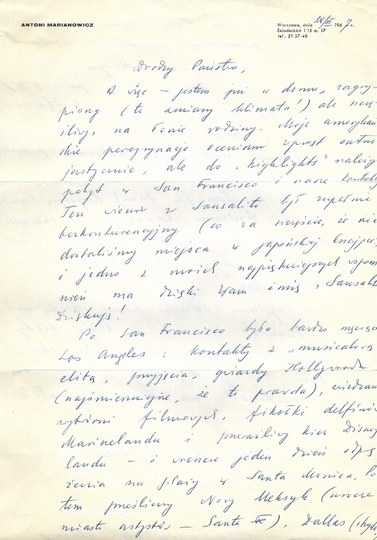 ANTONI MARIANOWICZ
Warszawa, dnia 28/XI 1967 r.
Śniadeckich 1/15 m. 17
tel. 21-57-40
Drodzy Państwo,
A więc – jestem już w domu, zagry-
piony (te zmiany klimatu!) ale szczę-
śliwy, na łonie rodziny. Moje amerykań-
skie peregrynacje oceniam wprost entuz-
jastycznie, ale do "highlights" należy
pobyt w San Francisco i nasze kontakty.
Ten wieczór z Sausalito był zupełnie
bezkonkurencyjny (co za szczęście, że nie
dostaliśmy miejsca w japońskiej knajpie,
i jedno z moich najpiękniejszych wspom-
nień ma dzięki Wam imię "Sausalito"
Dziękuję!
Po San Francisco było bardzo męczące
Los Angeles: kontakty z "musicalową
elitą, przyjęcia, gwiazdy Hollywoodu
(najśmieszniejsze, że to prawda), zwiedzanie
wytwórni filmowych, fikołki delfinów
Marinelandu i
landu – i wreszcie jeden dzień odpo-
czenia na plaży w Santa Monica. Po
tem prześliczny Nowy Meksyk (urocze
miasto artystów – Santa Fe), Dallas (chyba